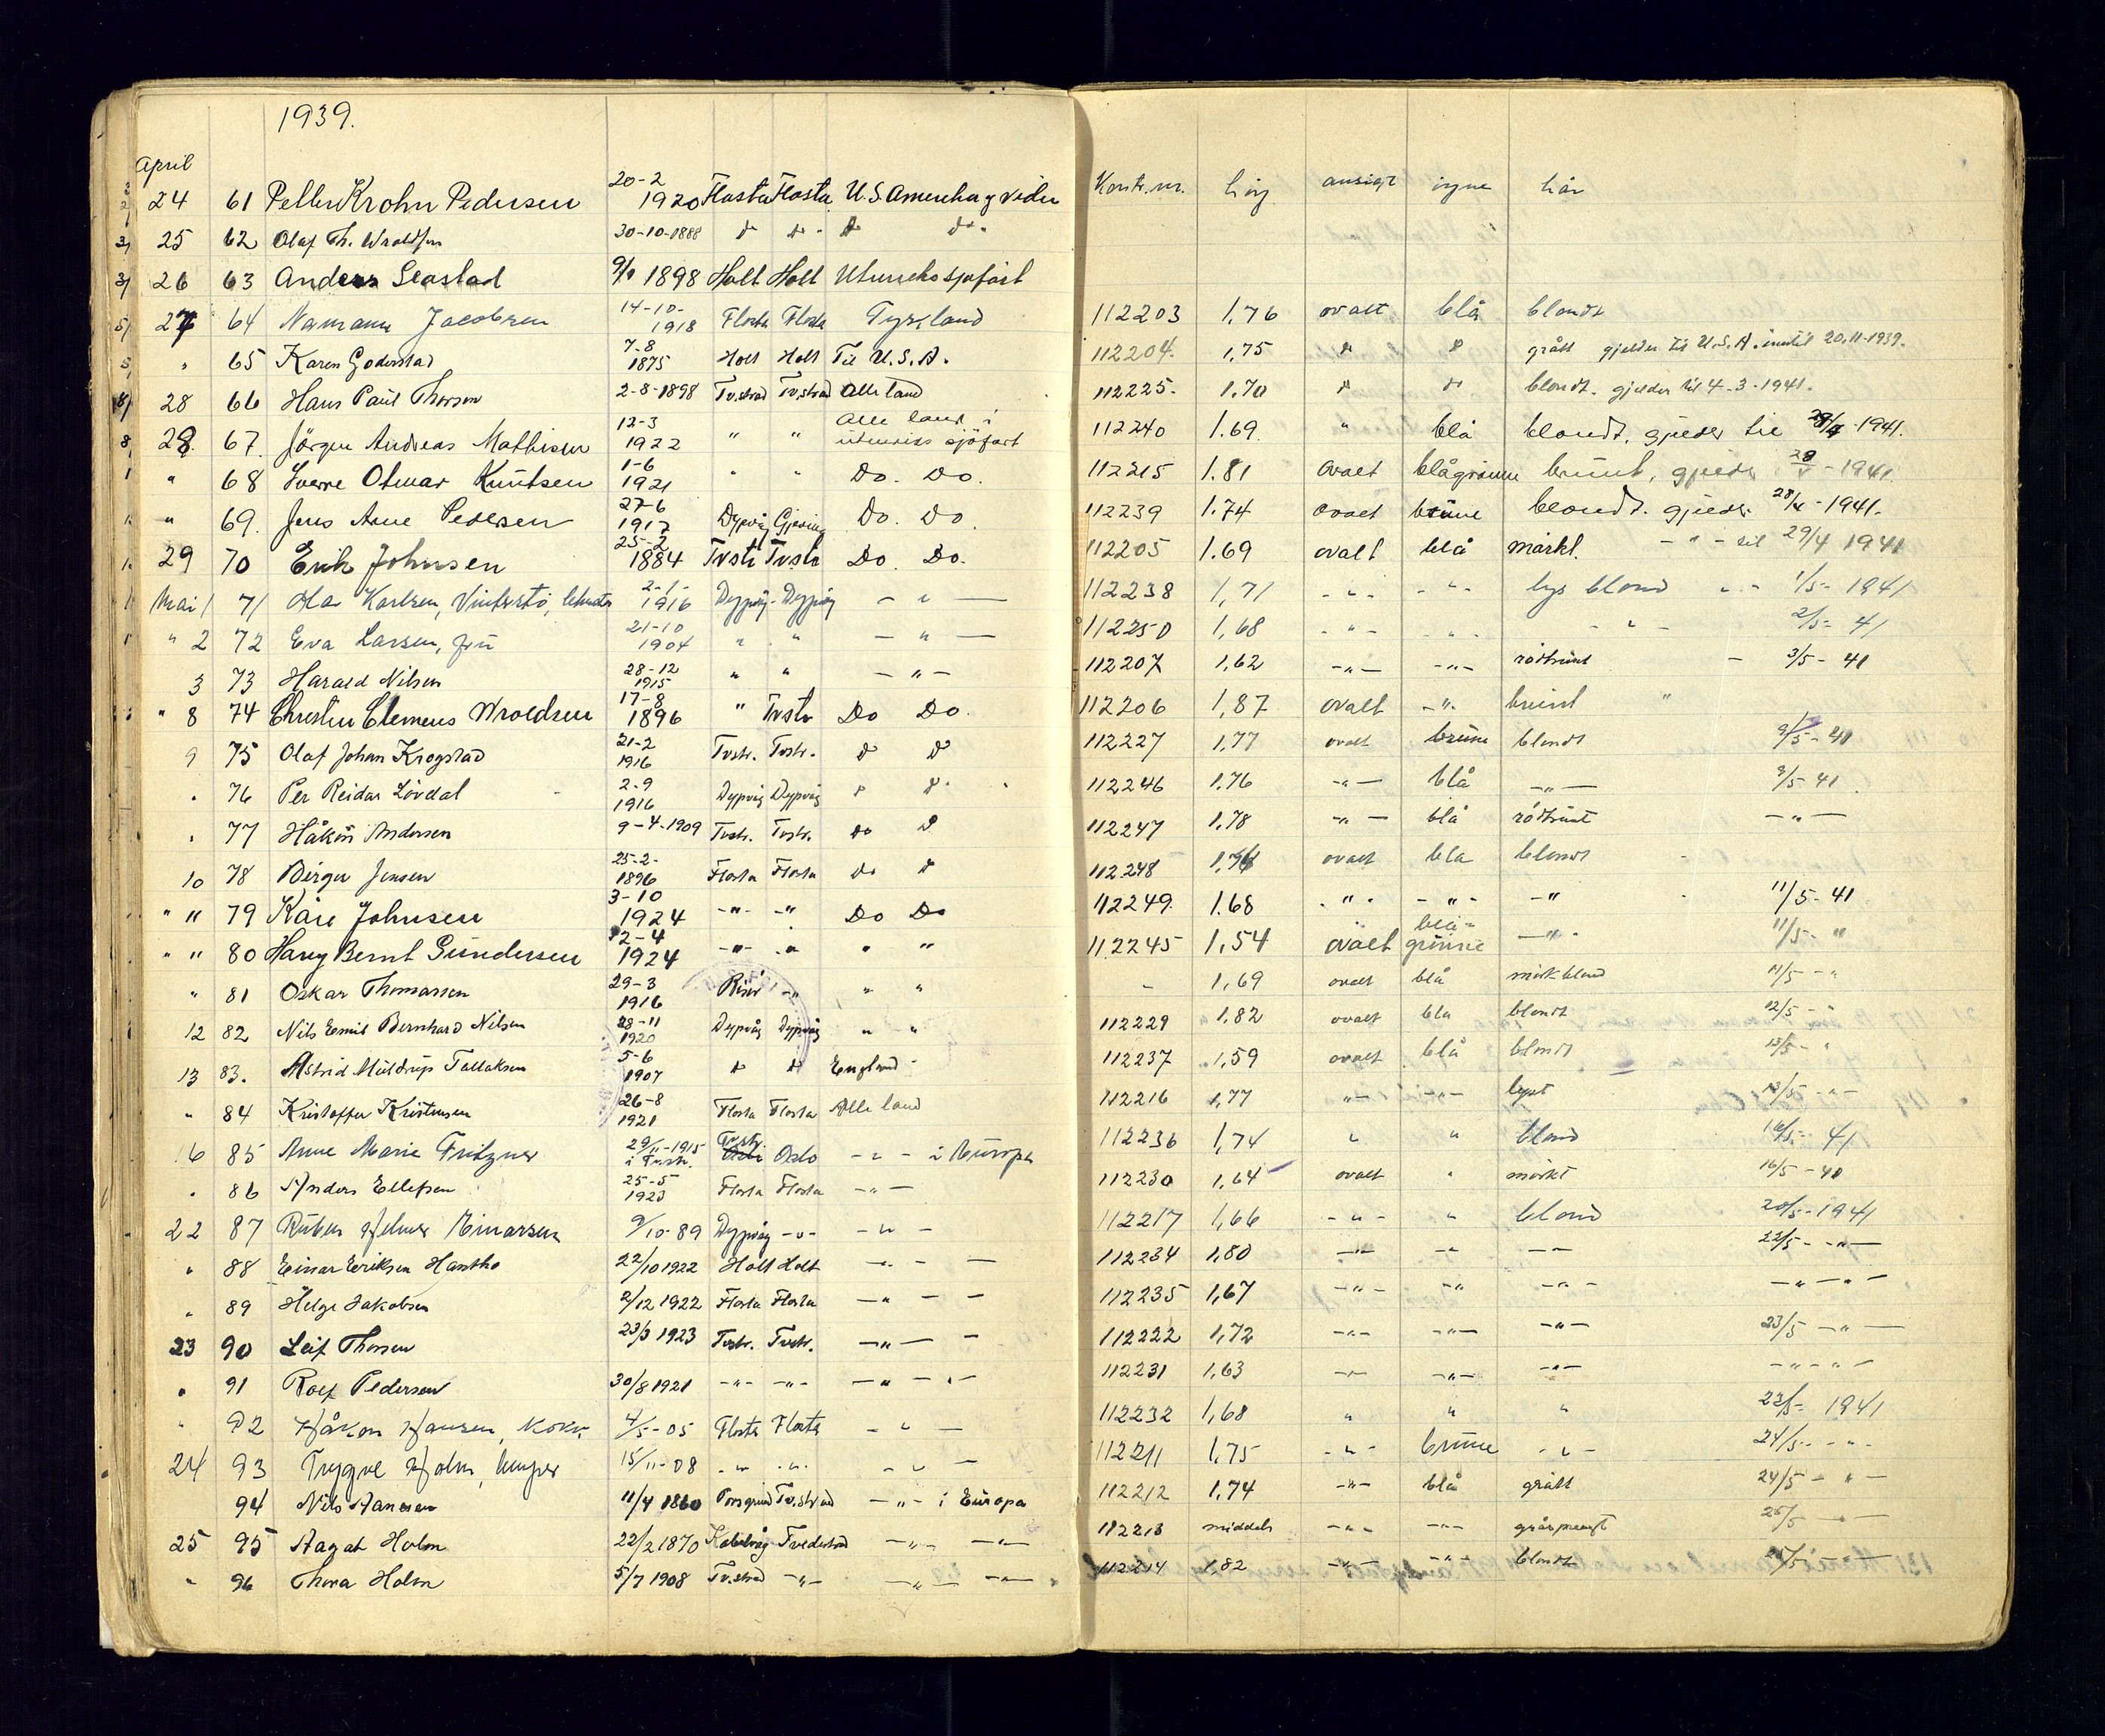 1939.
April
Kontr. nr. höy ansigt öyne hår
24 61 Petter Krohn Pedersen 20-2 1920 Flosta Flosta U.S. Amerika
25 62 Olaf Th. Wroldsen 30-10-1888 do do do do
26 63 Anders Seastad 1898 Holt Holt Utenriks sjøfart
27 64 Namann Jacobsen 14-10-1918 Flosta Flosta Tyskland 112203 1,76 ovalt blå blondt
" 65 Karen Goderstad 7-8 1875 Holt Holt Til U.S.A. 112204. 1,75 do do grått gjelder til U.S.A. inntil 20.11-1939.
28 66 Hans Paul Thorsen 2-8-1898 Tv.strad Tv.strad Alle land 112225. 1.70 do do blondt. gjelder til 4-3-1941.
28. 67. Jörgen Andreas Mathisen 12-3 1922 " " Alle land i utenriks sjöfart 112240 1.69. " blå blondt, gjelder til 28/4-1941.
" 68 Sverre Otmar Knutsen 1-6 1921 " " Do. Do. 112215 1.81 ovalt blågrønne brunt, gjelder 28-1941
" 69. Jens Arne Pedersen 27-6 1917 Dypvåg Gjeving Do. Do. 112239 1.74 ovalt brune blondt. gjelder 28/4-1941.
29 70 Erik Johnsen 25-2 1884 Tvstr Tvstr Do. Do. 112205 1.69 ovalt blå mörkt. - " - til 29/4 1941
Mai 1 71 Karlsen, 2-1- 1916 Dypvåg - Dypvåg - " - 112238 1,71 - " - - " - lys blond " - 1/5-1941
" 2 72 Eva Larsen, fru 21-10 1904 " " - " - 112250 1,68 - " - - " - - " - 2/5- 41
3 73 Harald Nilsen 28-12 1915 " " - " - 112207 1,62 - " - - " - rödbrunt - 3/5 - 41
" 8 74 Christen Clemens Wroldsen 17-8 1896 " Tvstr Do Do. 112206 1,87 ovalt - " - brunt "
9 75 Olaf Johan Krogstad 21-2 1916 Tvstr. Tvstr. do do 112227 1,77 ovalt brune blondt 9/5-41
" 76 Per Reidar Lövdal 2-9 1916 Dypvåg Dypvåg do do 112246 1,76 - " - blå - " - 9/5-41
" 77 Håkon Andersen 9-4-1909 Tvstr. Tvstr. do do 112247 1,78 - " - blå rödbrunt - " -
10 78 Birger Jensen 25-2- 1896 Flosta Flosta do do 112248 ovalt blå blondt
" 11 79 Kåre Johnsen 3-10 1924 - " - - " Do Do 112249. 1.68 - " - - " - - " 11/5-41
" 11 80 Harry Bernt Gundersen 12-4 1924 - " - " " " 112245 1,54 ovalt blå-grönne - " - 11/5- "
" 81 Oskar Thomassen 29-3 1916 Risør - " " " - 1,69 ovalt blå mörkblond 11/5 - "
12 82 Nils Emil Bernhard Nilsen 28-11 1920 Dypvåg Dypvåg " " 112229 1.82 ovalt blå blondt 12/5- "
13 83. Astrid Muldrup Tallaksen 5-6 1907 do do England 112237 1,59 ovalt blå blondt 13/5- "
" 84 Kristoffer Kristensen 26-8 1921 Flosta Flosta Alle land 112216 1,77 - " - - " - lyst 13/5 - " -
16 85 Anne Marie Fritzner 29/11-1915 i Tvstr. Tvstr. Oslo - " - i Europa 112236 1,74 " " blond 16/5- 41
" 86 Anders Ellefsen 25-5 1923 Flosta Flosta - " - 112230 1,64 ovalt " mörkt 16/5 - 41
22 87 Ruben Helmer Einarsen 9/10-89 Dypvåg - " - - " - 112217 1,66 - " - " blond 20/5-1941
" 88 Einar Eriksen Hantho 22/10 1922 Holt Holt - " - - 112234 1,80 - " - - " - - " - 22/5 - " -
" 89 Helge Jakobsen 2/12 1922 Flosta Flosta - " - - 112235 1,67 - " - - " - " - - " - " -
23 90 Leif Thorsen 23/3 1923 Tvstr. Tvstr. - " - - 112222 1,72 - " - - " - - " - 23/5 - " -
" 91 Rolf Pedersen 30/8 1921 - " - - " - - " - " - 112231 1,63 - " - - " - - " - - " - " -
" 92 Håkon Hansen, kokk 4/5-05 Flosta Flosta - " - 112232 1,68 " " " 23/5- 1941
24 93 Trygve Holm, 15/11-08 - " - " - - " - 112211 1,75 - " - brune - " - 24/5- - " -
94 Nils Hansen 11/4 1860 Porsgrund Tv.strad - " - i Europa 112212 1,74 - " - blå grått 24/5 - " -
25 95 Aagat Holm 22/2 1870 Tvedestrand - " - - " - 112213 middels - " - - " - gråsprengt 25/5 - " -
" 96 Thora Holm 5/7 1908 Tv.strad - " - - " - - " - 112214 1,82 - " - - " - blondt 25/5 - " -